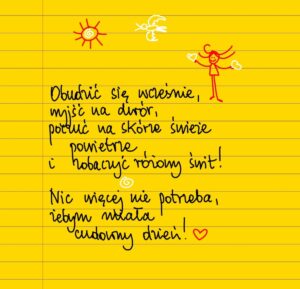 Obudzić się wcześnie,
wyjść na dwór,
poczuć na skórze świeże
powietrze
i zobaczyć różowy świt!
Nic więcej nie potrzeba,
żebym miała
cudowny dzień!